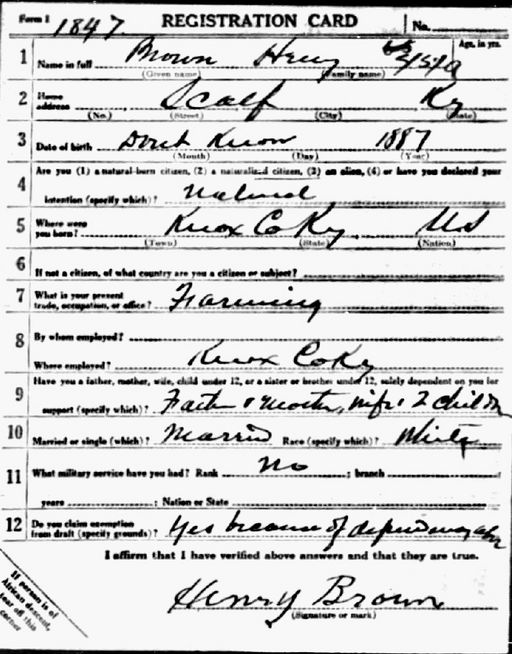 Form 1 1847. REGISTRATION CARD No.
1 Name in full Brown Henry Age, in yrs.
(Given name) (Family name)
2 Home address Scalf Ky
(No.) (Street) (City) (State)
3 Date of birth Dont Know 1887
(Month) (Day) (Year)
4 Are you (1) a natural-born citizen, (2) a naturalized citizen, (3) an alien, (4) or have you declared your
intention (specify which)? Natural
5 Where were you born? Knox Co Ky US
(Town) (State) (Nation)
6 If not a citizen, of what country are you a citizen or subject?
7 What is your present trade, occupation, or office? Farming
8 By whom employed?
Where employed? Knox Co Ky
9 Have you a father, mother, wife, child under 12, or a sister or brother under 12, solely dependent on you for
support (specify which)? Father & Mother, wife & 2 children
10 Married or single (which)? Married Race (specify which)? White
11 What military service have you had? Rank No ; branch
years ; Nation or State
12 Do you claim exemption from draft (specify grounds)? Yes because of dependency
I affirm that I have verified above answers and that they are true.
Henry Brown
(Signature or mark)
If person is of
African descent,
tear off this
corner